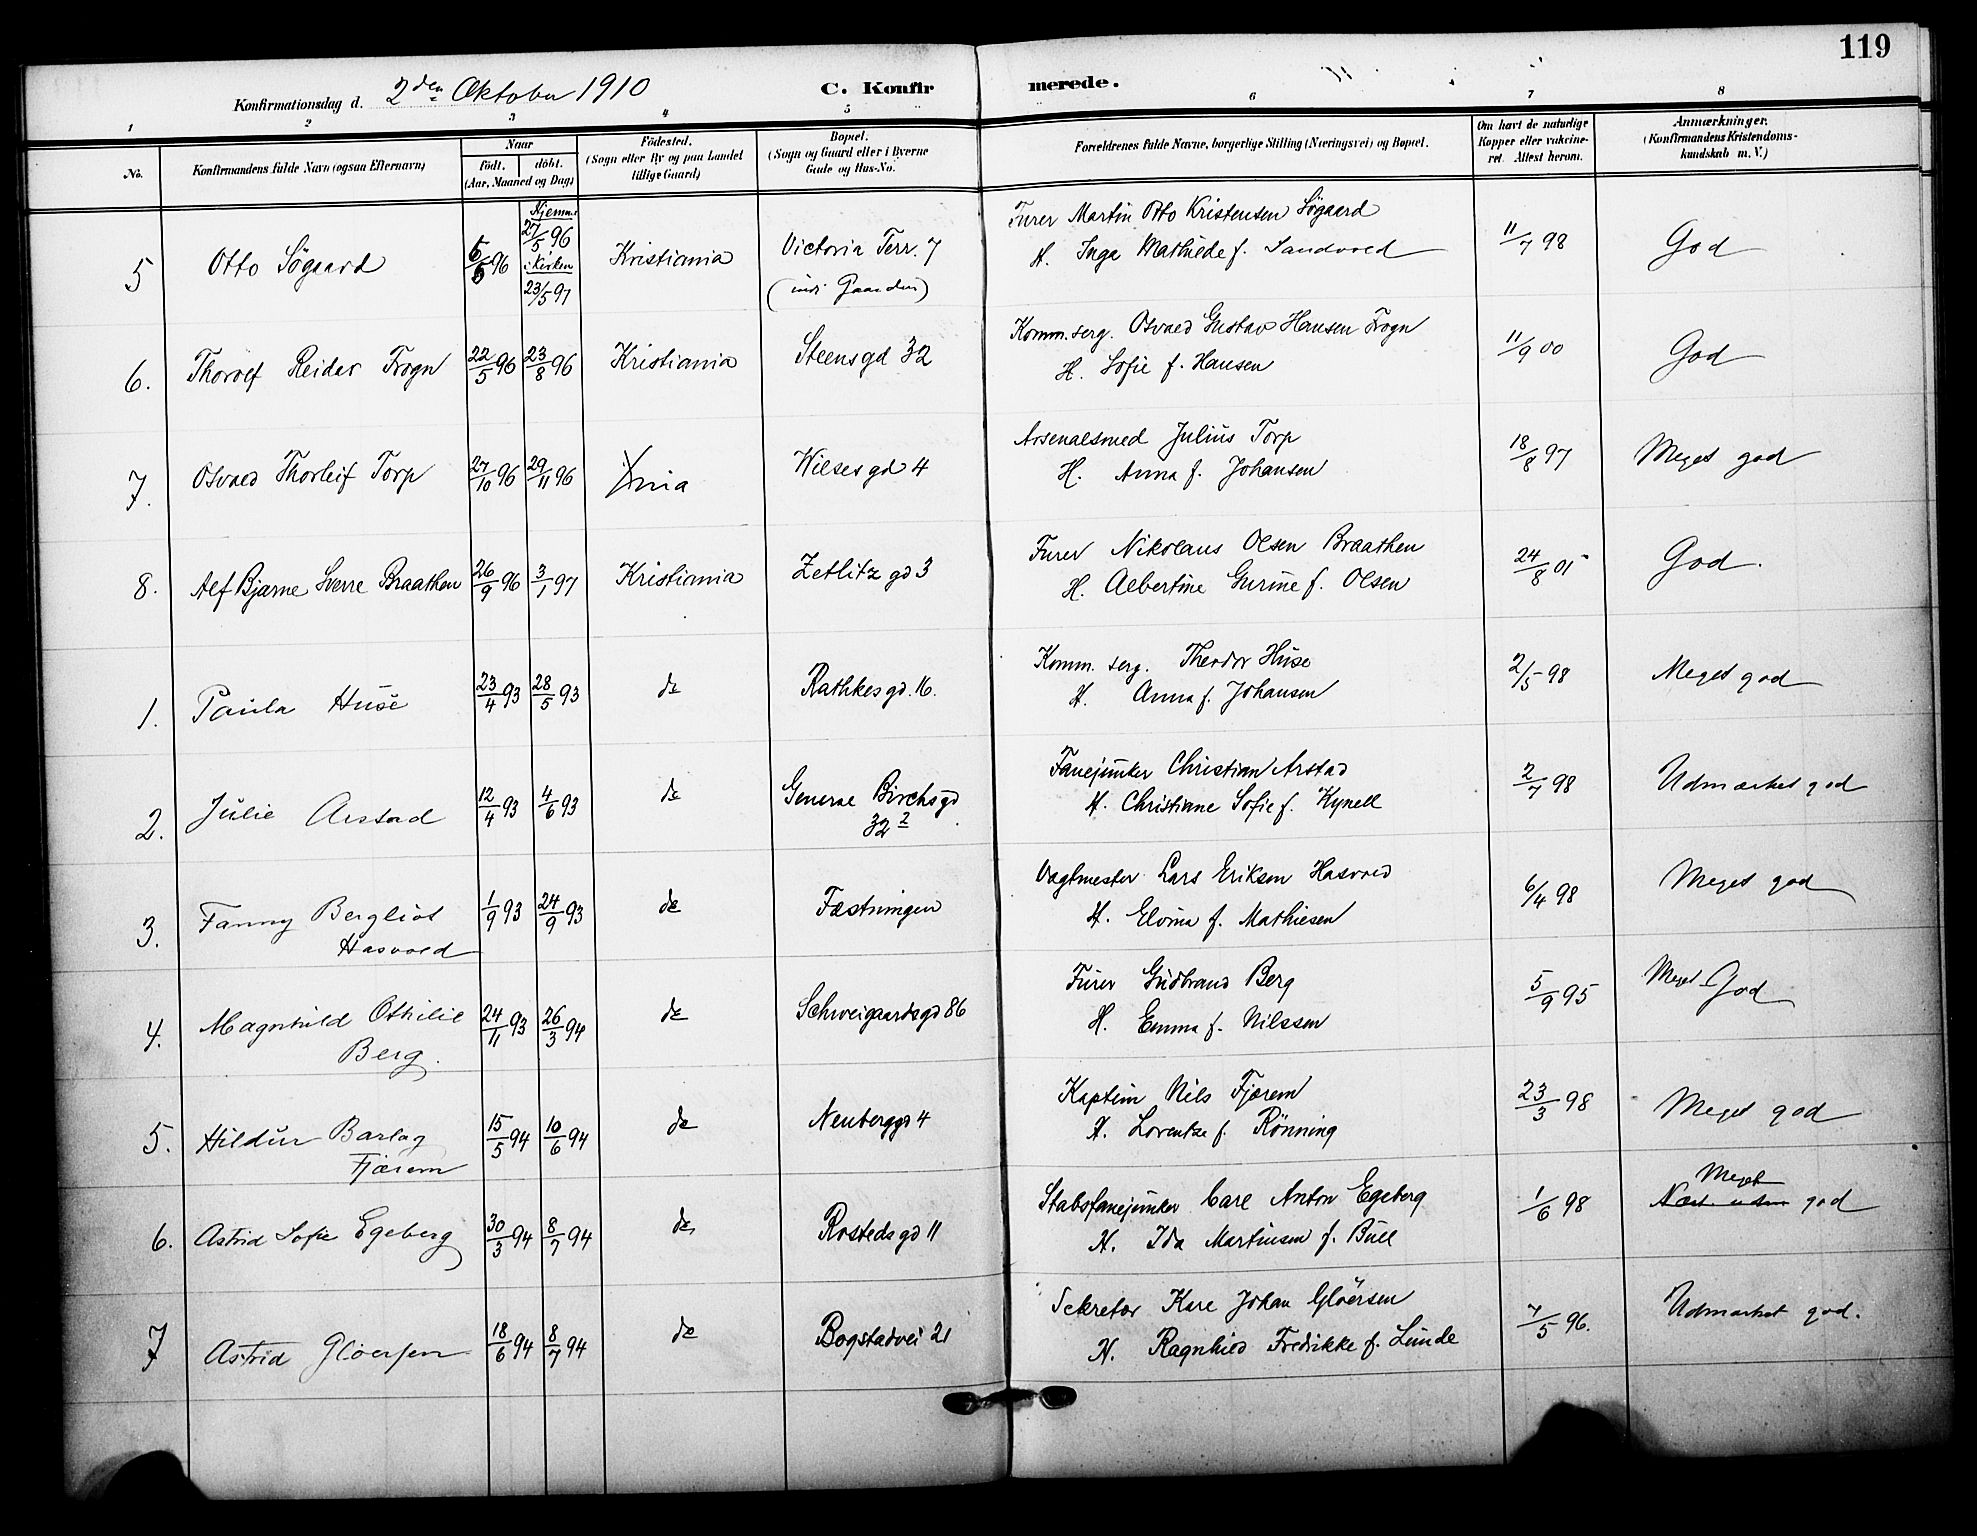 119
Konfirmationsdag d. 2den Oktober 1910 C. Konfir merede.
1 2 3 4 5 6 7 8
No. Konfirmandens fulde Navn (ogsaa Efternavn) Naar födt. döbt. (Aar, Maaned og Dag) Födested. (Sogn eller By og paa Landet tillige Gaard) Bopæl. (Sogn og Gaard eller i Byerne Gade og Hus-No. Forældrenes fulde Navne, borgerlige Stilling (Næringsvei) og Bopæl. Om havt de naturlige Kopper eller vakcineret. Attest herom. Anmærkninger. (Konfirmandens Kristendomskundskab m. V.)
5 Otto Sögaard 6/5 96 Hjemme 27/5 96 i Kirken 23/5 97 Kristiania Victoria Terr. 7 Furer Martin Otto Kristensen Sögaard 11/7 98 God
H. Inga Mathilde f. Sandvold
6. Thorolf Reidar Frogn 22/5 96 23/8 96 Kristiania Steensgd 32 Komm. serg. Osvald Gustav Hansen Frogn 11/9 00 God
H. Sofie f. Hansen
7. Osvald Thorleif Torp 27/10 96 29/11 96 Xnia Wilsesgd 4 Arsenalsmed Julius Torp 18/8 97 Meget god
H. Anna f. Johansen
8. Alf Bjarne Sverre Braathen 26/9 96 3/1 97 Kristiania Zetlitz gd 3 Furer Nikolaus Olsen Braathen 24/8 01 God.
H. Albertine Gurine f. Olsen
1. Paula Huse 23/4 93 28/5 93 do Rathkesgd. 16. Komm. serg. Theodor Huse 2/5 98 Meget god
H. Anna f. Johansen
2. Julie Arstad 12/4 93 4/6 93 do General Birchsgd 32 2 Fanejunker Christian Arstad 2/7 98 Udmærket god
H. Christiane Sofie f. Kynell
3. Fanny Bergliot Hasvold 1/9 93 24/9 93 do Fæstningen Vagtmester Lars Eriksen Hasvold 6/4 98 Meget god
H. Elvina f. Mathiesen
4. Magnhild Othilie Berg. 24/11 93 26/3 94 do Schweigaardsgd 86 Furer Gudbrand Berg 5/9 95 Meget God
H. Emma f. Nilssen
5. Hildur Barlag Fjærem 15/5 94 10/6 94 do Neuberggd 4 Kaptein Nils Fjærem 23/3 98 Meget god
H. Lorentze f. Rönning
6. Astrid Sofie Egeberg 30/3 94 8/7 94 do Rostedsgd 11 Stabsfanejunker Carl Anton Egeberg 1/6 98 Meget god
H. Ida Martinsen f. Bull
7 Astrid Gloersen 18/6 94 8/7 94 do Bogstadvei 21 Sekretær Karl Johan Glöersen 7/5 96. Udmærket god.
H. Ragnhild Fredrikke f. Lunde